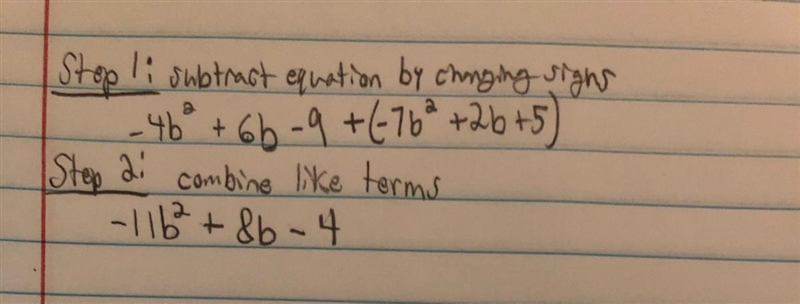 Step 1: subtract equation by changing signs
-4b² + 6b - 9 + (-7b² + 2b + 5)
Step 2: combine like terms
-11b² + 8b - 4